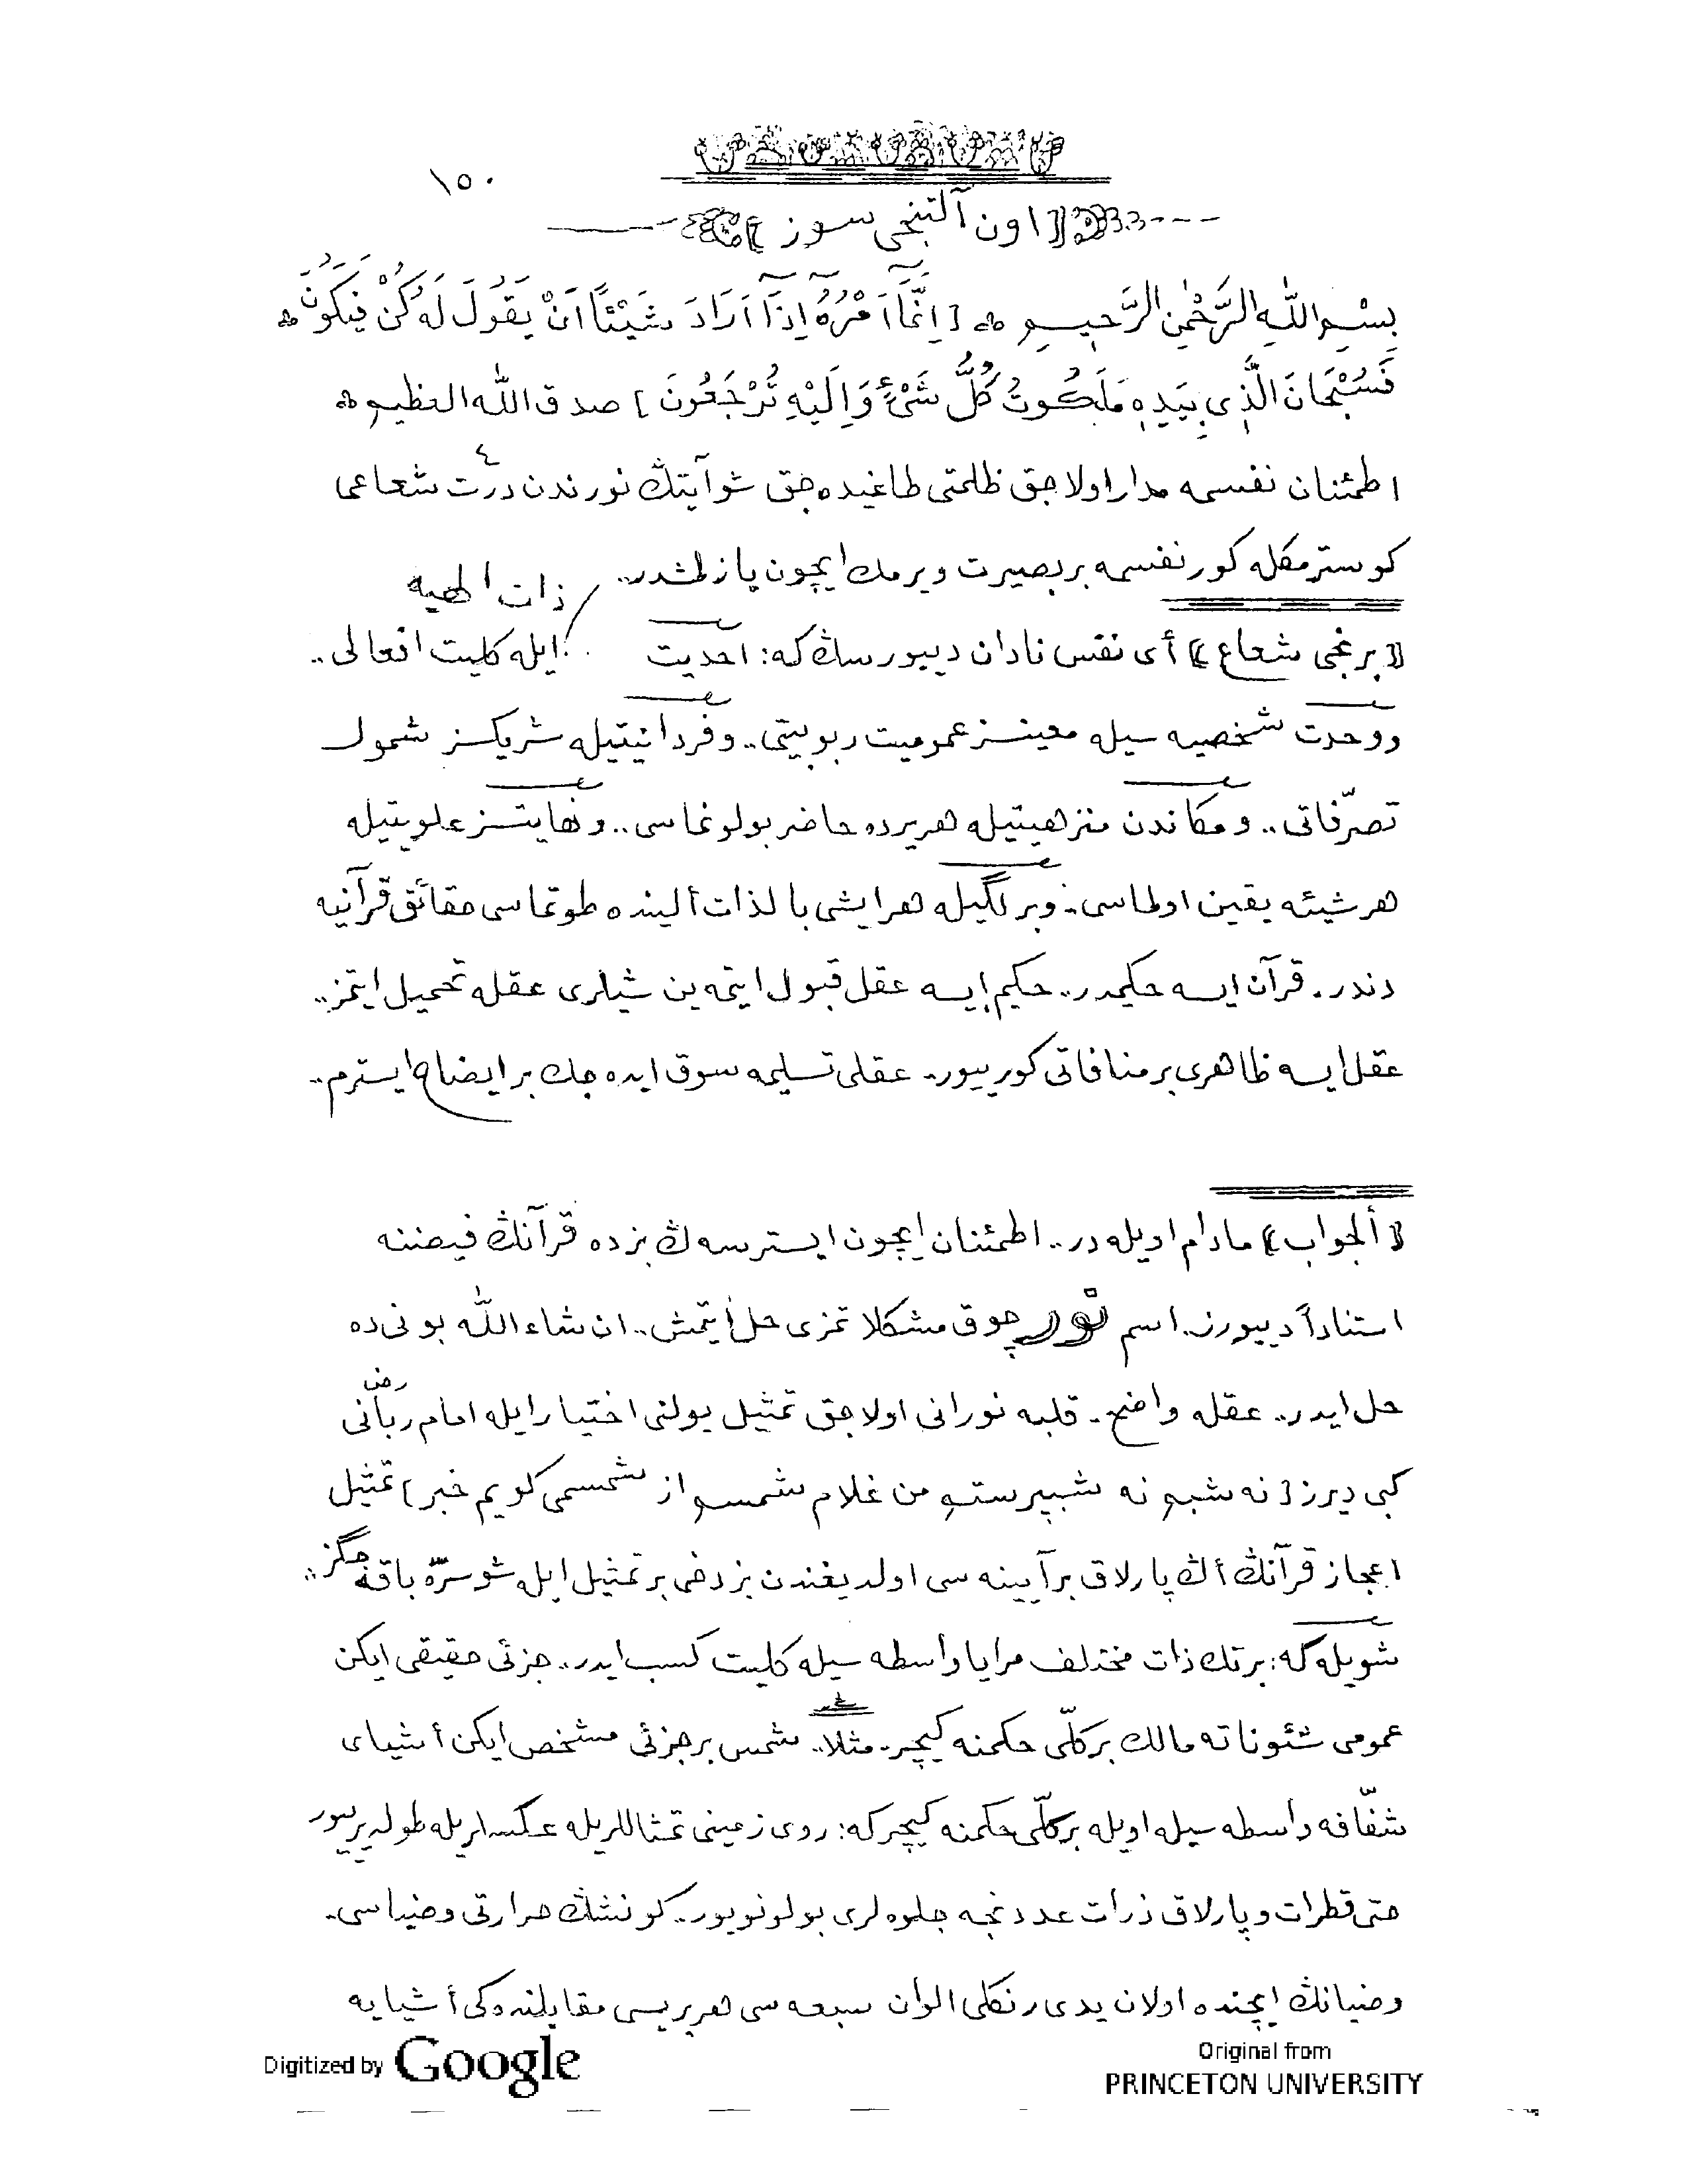 ١٥٠
﴿ اون آلتنجی سوز ﴾
بِسْمِ اللّٰهِ الرَّحْمٰنِ الرَّحِيمِ ۞ [ اِنَّمَآ اَمْرُهُٓ اِذَٓا اَرَادَ شَيْئًا اَنْ يَقُولَ لَهُ كُنْ فَيَكُونُ ۞
فَسُبْحَانَ الَّذِى بِيَدِهِ مَلَكُوتُ كُلِّ شَىْءٍ وَاِلَيْهِ تُرْجَعُونَ ] صدق اللّٰه العظيم ۞
اطمئنان نفسمه مدار اولاجق ظلمتی طاغیده‌جق شو آیتڭ نورندن درت ٤ شعاعی
كوسترمكله كور نفسمه بر بصیرت ویرمك ایچون یازلمشدر..
ذات الٰهیه
﴿ برنجی شعاع ﴾ أی نفس نادان دییورسڭ كه: احدیت ایله كلیت افعالی..
ووحدت شخصیه سیله معینسز عمومیت ربوبیتی.. وفردانیتیله شریكسز شمول
تصرّفاتی.. ومكاندن منزهیتیله هریرده حاضر بولونماسی.. ونهایتسز علویتیله
هر شیئه یقین اولماسی.. وبرلگیله هر ایشی بالذات ألینده طوتماسی حقائق قرآنیه
دندر. قرآن ایسه حكیمدر.. حكیم ایسه عقل قبول ایتمه‌ین شیلری عقله تحمیل ایتمز..
عقل ایسه ظاهری بر منافاتی كورییور.. عقلی تسلیمه سوق ایده‌جك بر ایضاح ایسترم..
﴿ ألجواب ﴾ مادام اویله در.. اطمئنان ایچون ایسترسه‌ڭ بزده قرآنڭ فیضننه
استناداً دییورز.. اسم نور چوق مشكلاتمزی حل ایتمش.. ان شاء اللّٰه بونی ده
حل ایدر.. عقله واضح.. قلبه نورانی اولاجق تمثیل یولنی اختیار ایله امام ربّانی رض
كبی دیرز [ نه شبم نه شب‌پرستم من غلام شمسم از شمسی كویم خبر ] تمثیل
اعجاز قرآنڭ أڭ پارلاق بر آیینه سی اولدیغندن بزدخی بر تمثیل ایله شو سرّه باقه‌جگز..
شویله كه: بر تك ذات مختلف مرایا واسطه سیله كلیت كسب ایدر.. جزئی حقیقی ایكن
عمومی شئوناته مالك بر كلّی حكمنه كیچر.. مثلا.. شمس بر جزئی مشخص ایكن أشیای
شفّافه واسطه سیله اویله بر كلّی حكمنه كیچر كه: روی زمینی تمثاللریله عكسلریله طولدیرییور
حتی قطرات وپارلاق ذرات عددنجه جلوه لری بولونویور.. كونشڭ حرارتی وضیاسی..
وضیانڭ ایچنده اولان یدی رنكلی الوان سبعه سی هر بریسی مقابلنده‌كی أشیایه
Digitized by Google
Original from
PRINCETON UNIVERSITY